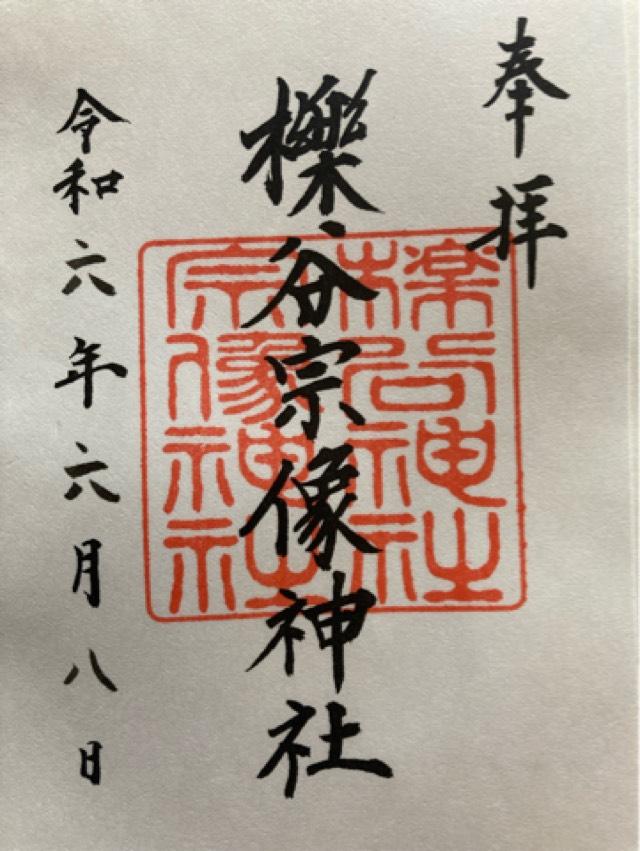 奉拝
櫟谷宗像神社
櫟谷神社
宗像神社
令和六年六月八日